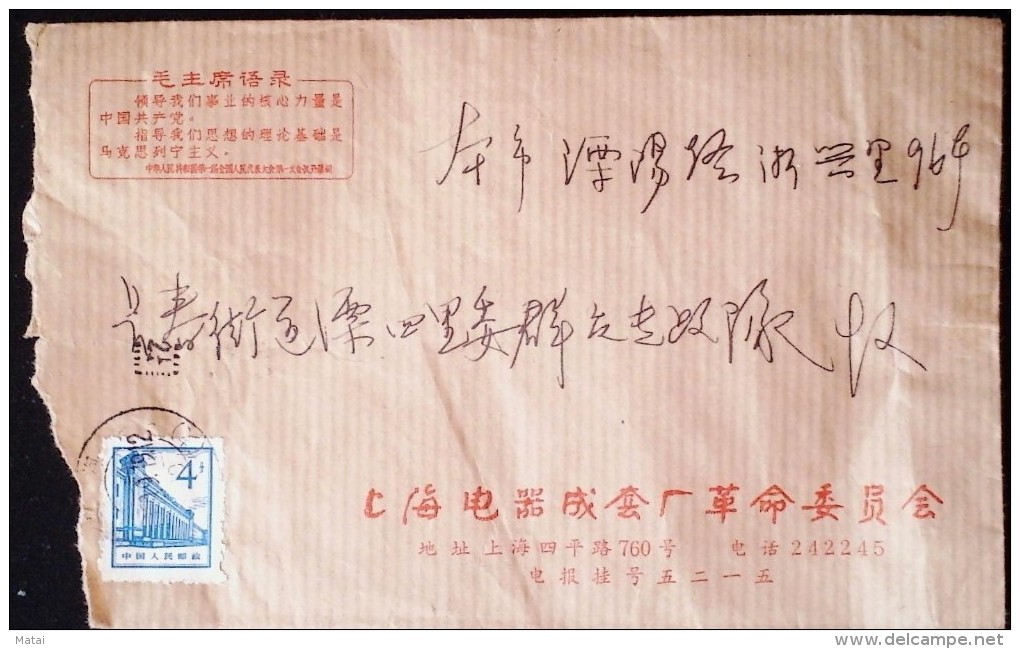 毛主席语录
领导我们事业的核心力量是
中国共产党。
指导我们思想的理论基础是
马克思列宁主义。
中华人民共和国第一届全国人民代表大会第一次会议开幕词
本市溧阳路浙兴里964
街道溧四里委群众专政队 收
4分
中国人民邮政
上海电器成套厂革命委员会
地址上海四平路760号 电话242245
电报挂号五二一五
Matai
www.delcampe.net